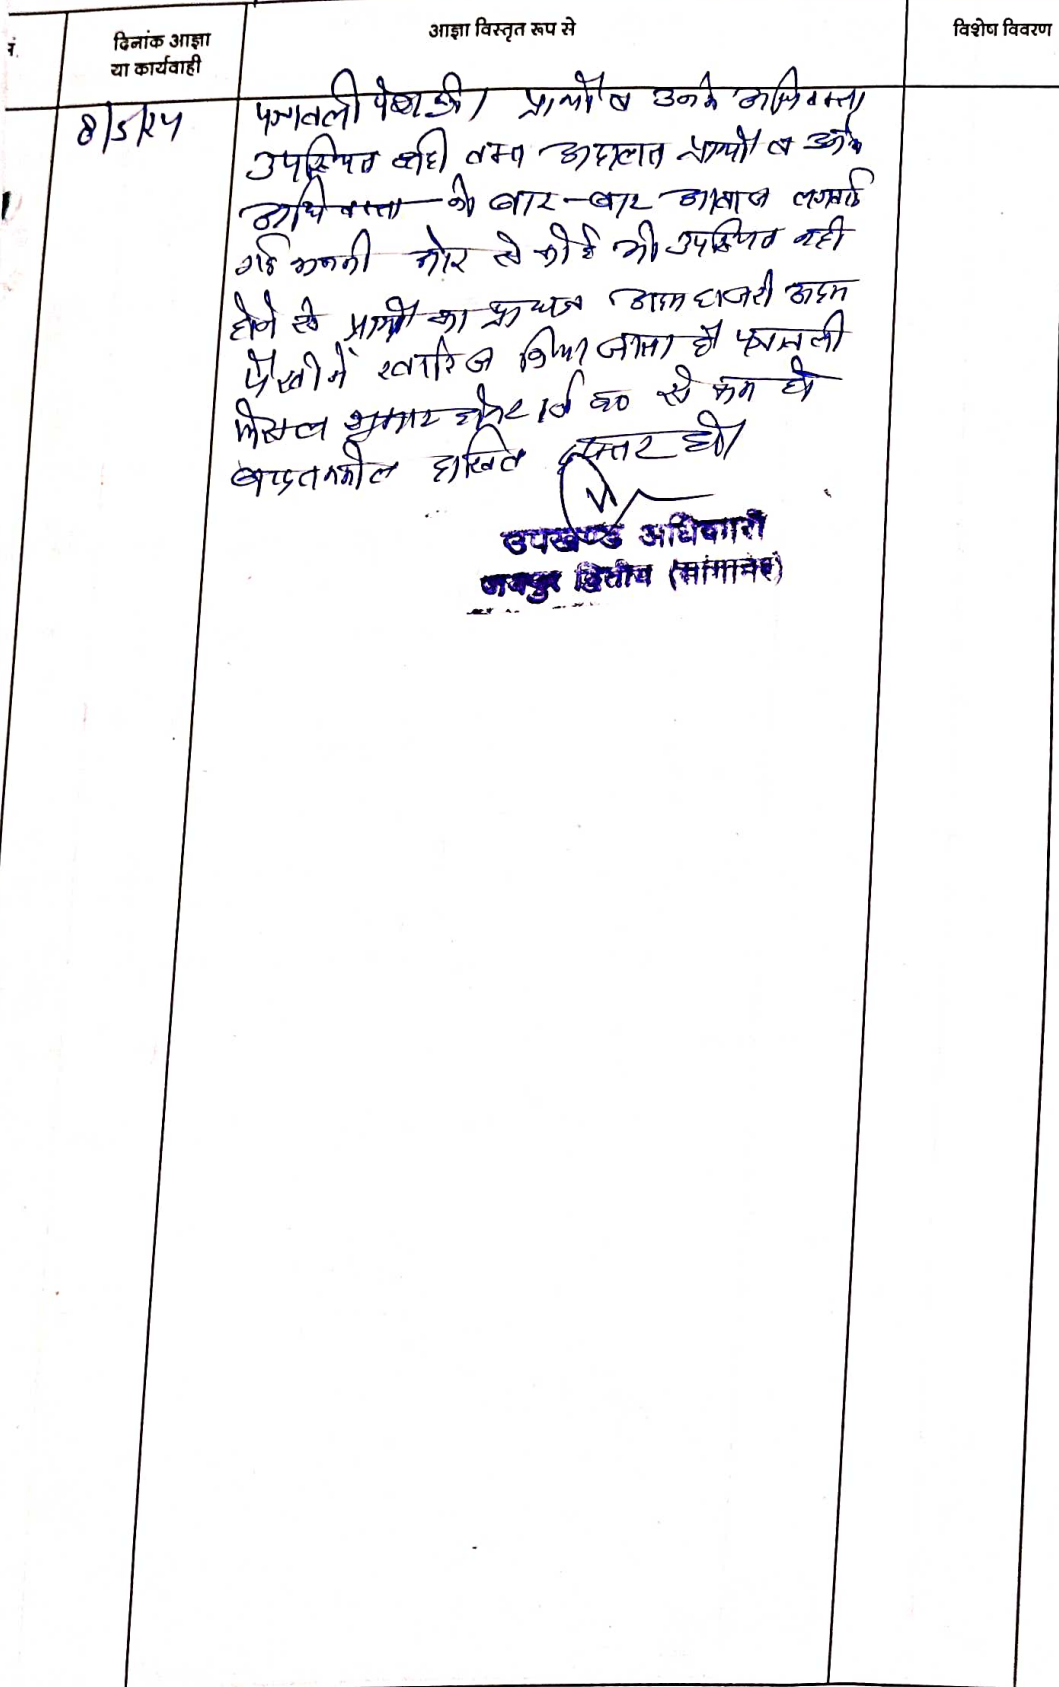 नं.
दिनांक आज्ञा
या कार्यवाही
आज्ञा विस्तृत रूप से
विशेष विवरण
8/5/24
पत्रावली पेश हुई। प्रार्थी व उनके अधिवक्ता
उपस्थित नही वक्त अदालत प्रार्थी व उनके
अधिवक्ता को बार-बार आवाज लगवाई
गई उनकी ओर से कोई भी उपस्थित नही
होने से प्रार्थी का प्रा० पत्र अदम हाजरी अदम
पैरवी में खारिज किया जाता है पत्रावली
फैसल शुमार होकर नं० से कम हो
बादतकमील दाखिल दफ्तर हो।
उपखण्ड अधिकारी
जयपुर द्वितीय (सांगानेर)